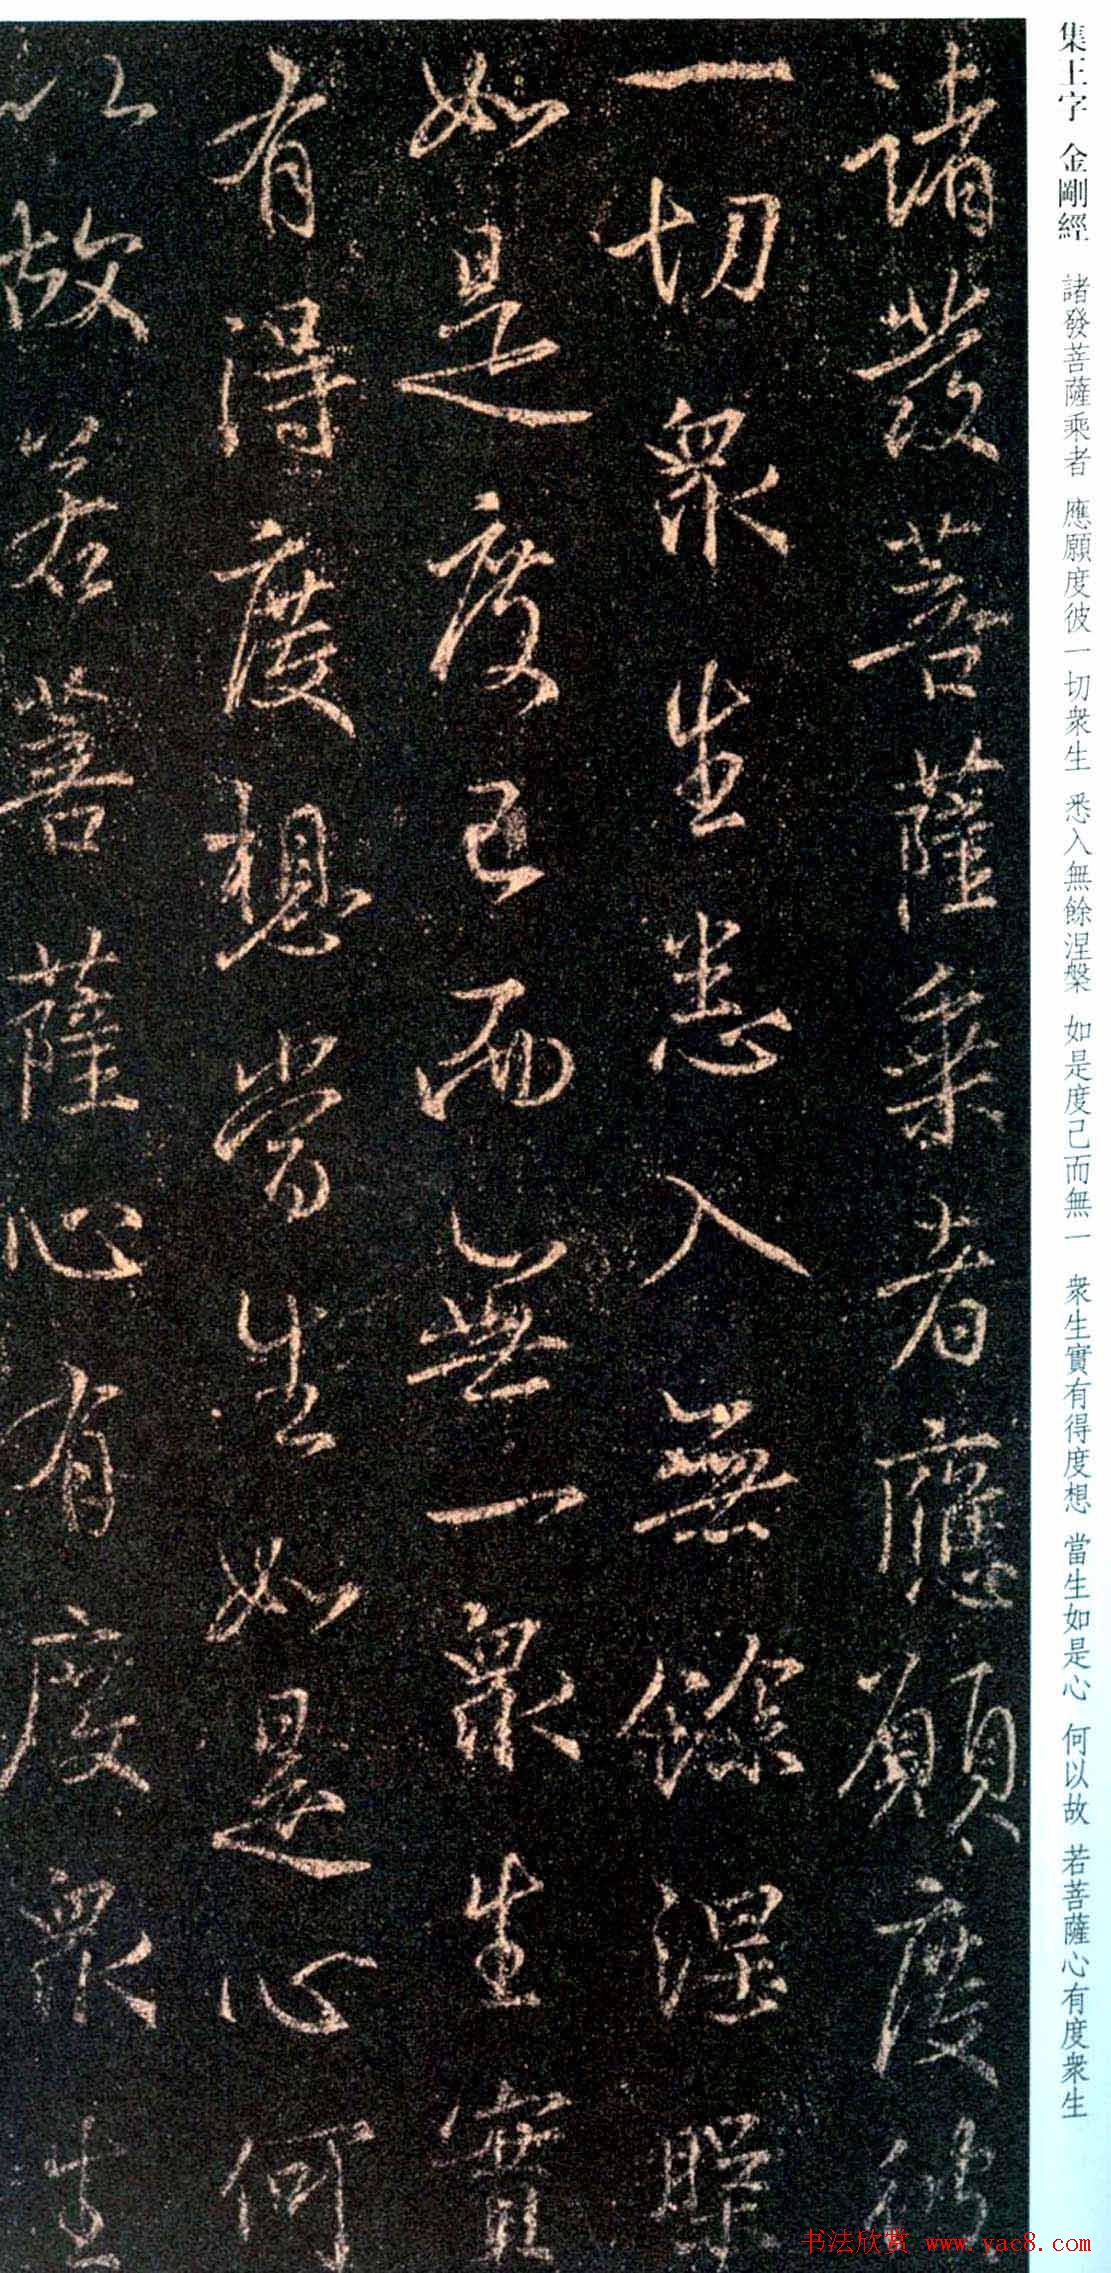 集王字 金剛經 諸發菩薩乘者 應願度彼一切衆生 悉入無餘涅槃 如是度己而無一 衆生實有得度想 當生如是心 何以故 若菩薩心有度衆生
諸發菩薩乘者應願度彼
一切衆生悉入無餘涅槃
如是度已而無一衆生實
有得度想當生如是心何
以故若菩薩心有度衆生
书法欣赏 www.yac8.com